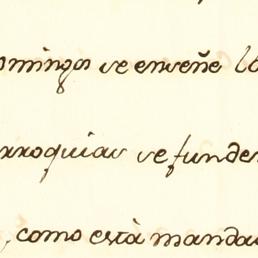 omingos se enseñe la
rroquias se funden
, como està mandad